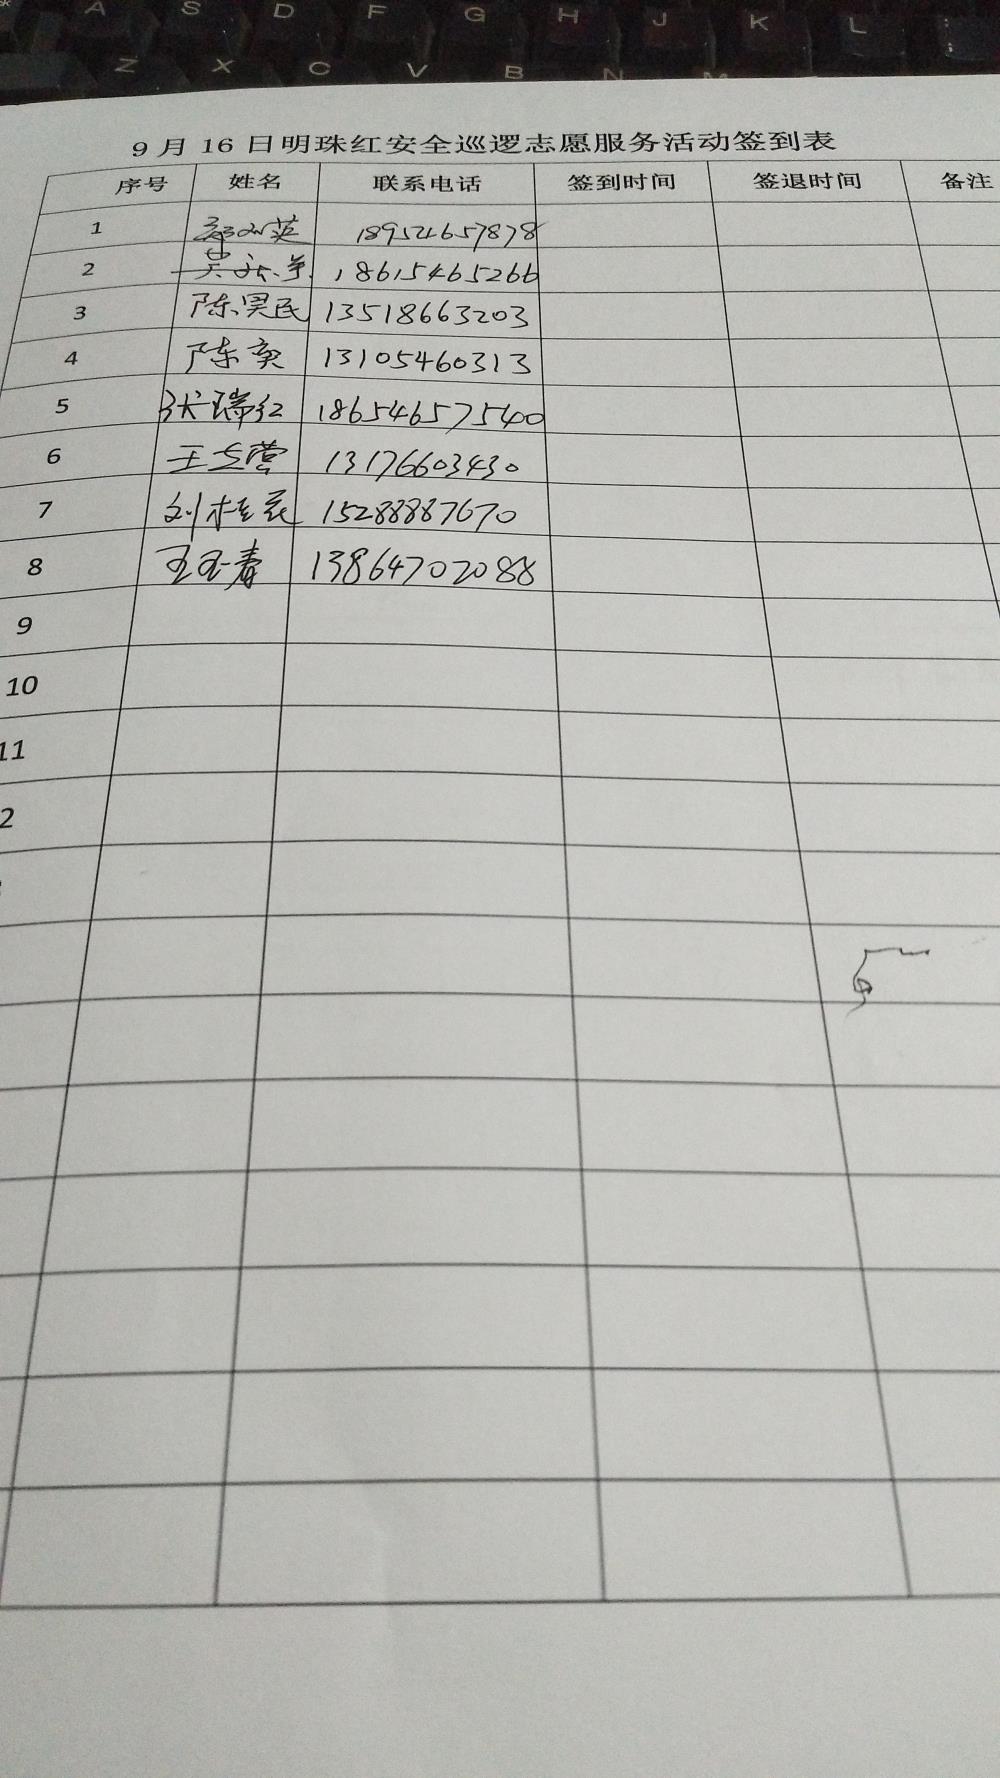 A S D F G H J K L ;
Z X C V B N M
9 月 16 日明珠红安全巡逻志愿服务活动签到表
序号 姓名 联系电话 签到时间 签退时间 备注
1 英 189524657878
2 18615465266
3 陈昊民 13518663203
4 陈英 13105460313
5 张瑞红 18654657540
6 王志营 13176603430
7 刘桂花 15288887670
8 王玉春 13864702088
9
10
11
2